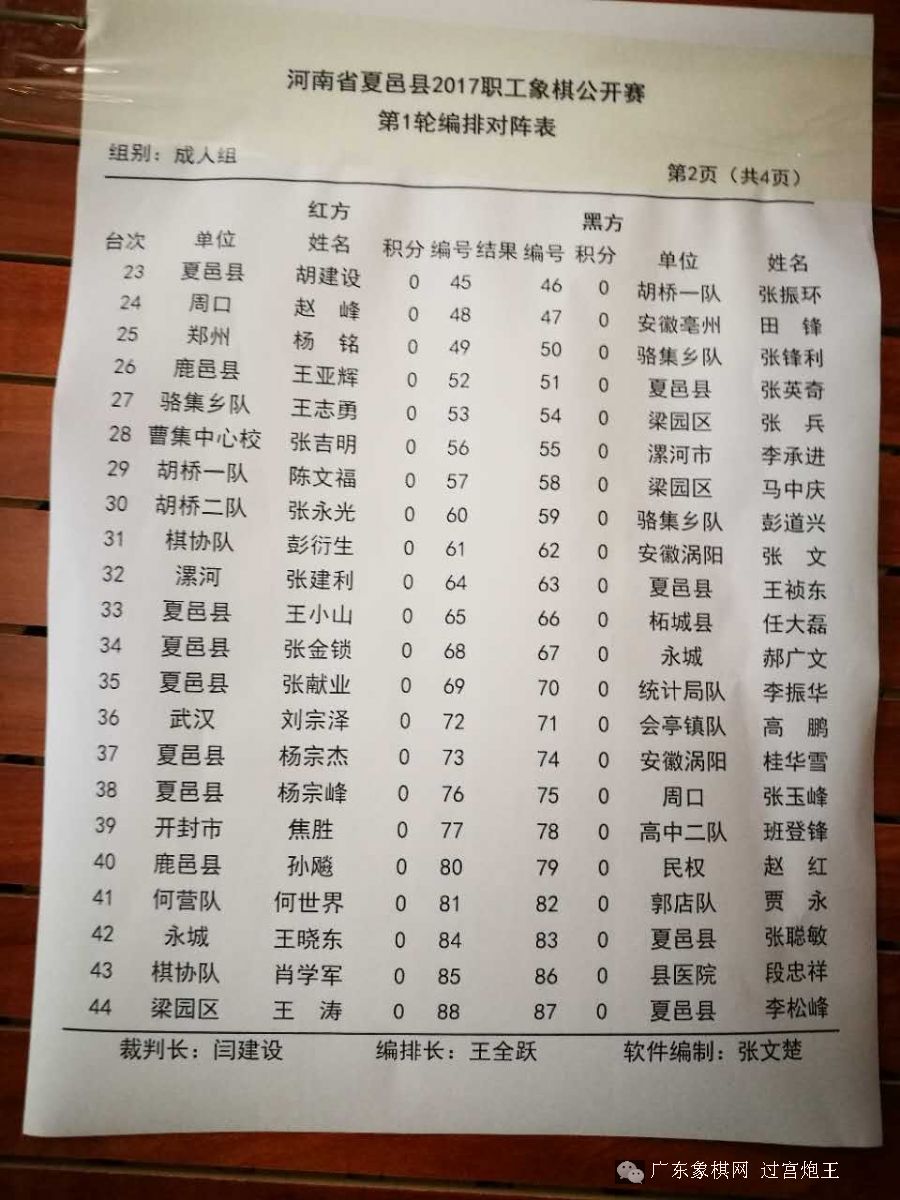 河南省夏邑县2017职工象棋公开赛
第1轮编排对阵表
组别：成人组 第2页（共4页）
红方 黑方
台次 单位 姓名 积分 编号 结果 编号 积分 单位 姓名
23 夏邑县 胡建设 0 45 46 0 胡桥一队 张振环
24 周口 赵 峰 0 48 47 0 安徽亳州 田 锋
25 郑州 杨 铭 0 49 50 0 骆集乡队 张锋利
26 鹿邑县 王亚辉 0 52 51 0 夏邑县 张英奇
27 骆集乡队 王志勇 0 53 54 0 梁园区 张 兵
28 曹集中心校 张吉明 0 56 55 0 漯河市 李承进
29 胡桥一队 陈文福 0 57 58 0 梁园区 马中庆
30 胡桥二队 张永光 0 60 59 0 骆集乡队 彭道兴
31 棋协队 彭衍生 0 61 62 0 安徽涡阳 张 文
32 漯河 张建利 0 64 63 0 夏邑县 王祯东
33 夏邑县 王小山 0 65 66 0 柘城县 任大磊
34 夏邑县 张金锁 0 68 67 0 永城 郝广文
35 夏邑县 张献业 0 69 70 0 统计局队 李振华
36 武汉 刘宗泽 0 72 71 0 会亭镇队 高 鹏
37 夏邑县 杨宗杰 0 73 74 0 安徽涡阳 桂华雪
38 夏邑县 杨宗峰 0 76 75 0 周口 张玉峰
39 开封市 焦胜 0 77 78 0 高中二队 班登锋
40 鹿邑县 孙飚 0 80 79 0 民权 赵 红
41 何营队 何世界 0 81 82 0 郭店队 贾 永
42 永城 王晓东 0 84 83 0 夏邑县 张聪敏
43 棋协队 肖学军 0 85 86 0 县医院 段忠祥
44 梁园区 王 涛 0 88 87 0 夏邑县 李松峰
裁判长：闫建设 编排长：王全跃 软件编制：张文楚
广东象棋网 过宫炮王